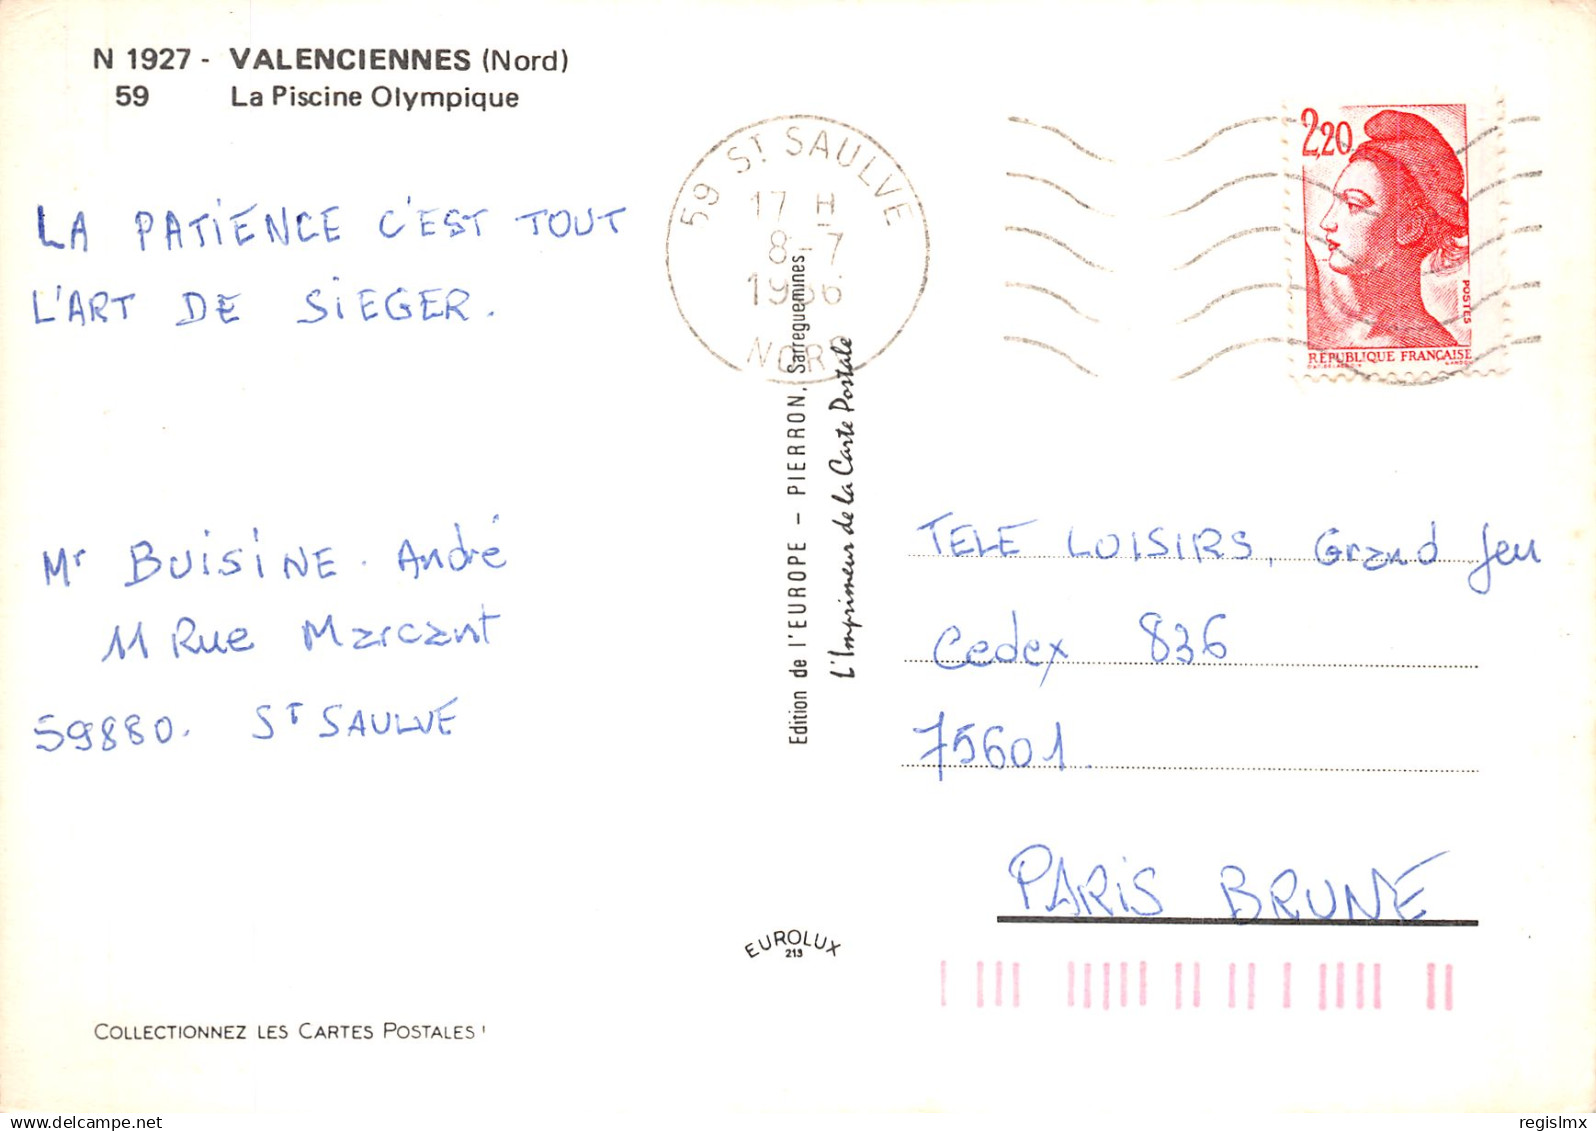 N 1927 - VALENCIENNES (Nord)
59 La Piscine Olympique
LA PATIENCE C'EST TOUT
L'ART DE SIEGER.
Mr BUISINE. André
11 Rue Marcant
59880. ST SAULVE
COLLECTIONNEZ LES CARTES POSTALES !
59 ST SAULVE
17 H
8-7
1986
NORD
Edition de l'EUROPE - PIERRON, Sarreguemines
L'Imprimeur de la Carte Postale
EUROLUX
213
2,20
POSTES
RÉPUBLIQUE FRANÇAISE
TELE LOISIRS, Grand Jeu
Cedex 836
75601.
PARIS BRUNE
regislmx